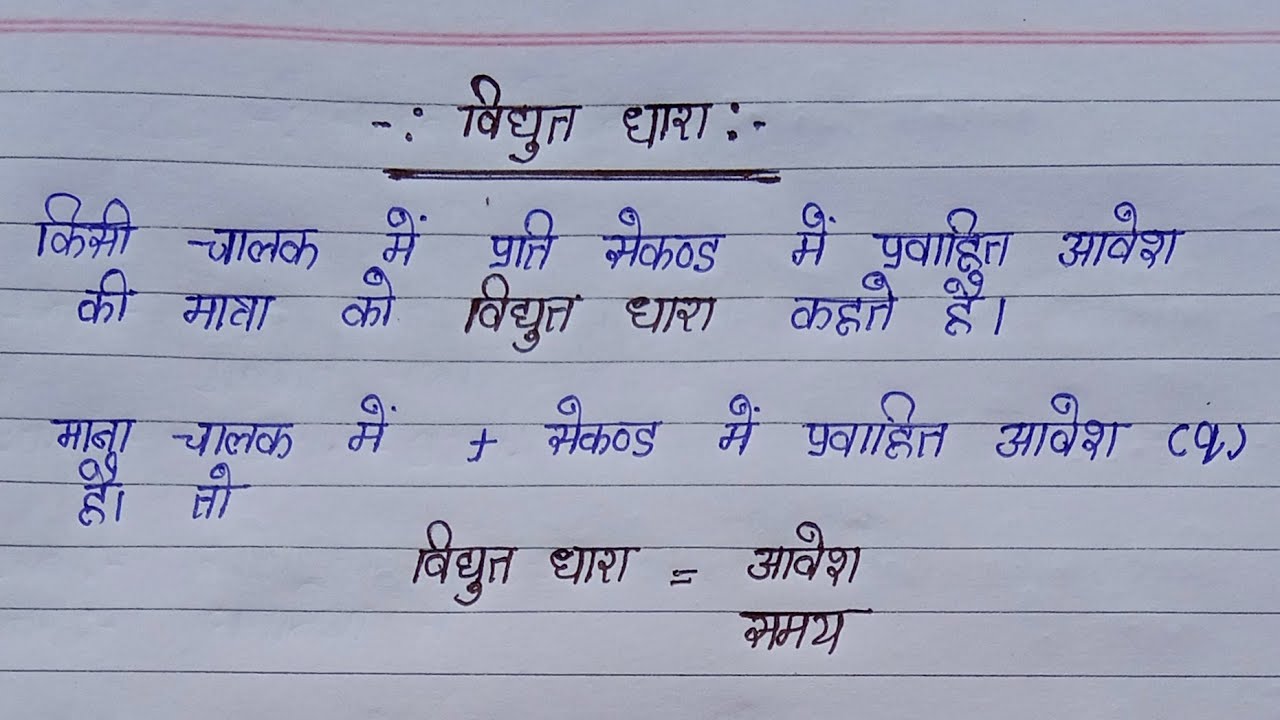 -: विद्युत धारा :-
किसी चालक में प्रति सेकण्ड में प्रवाहित आवेश
की मात्रा को विद्युत धारा कहते है।
माना चालक में t सेकण्ड में प्रवाहित आवेश (q)
है। तो
विद्युत धारा = आवेश
समय